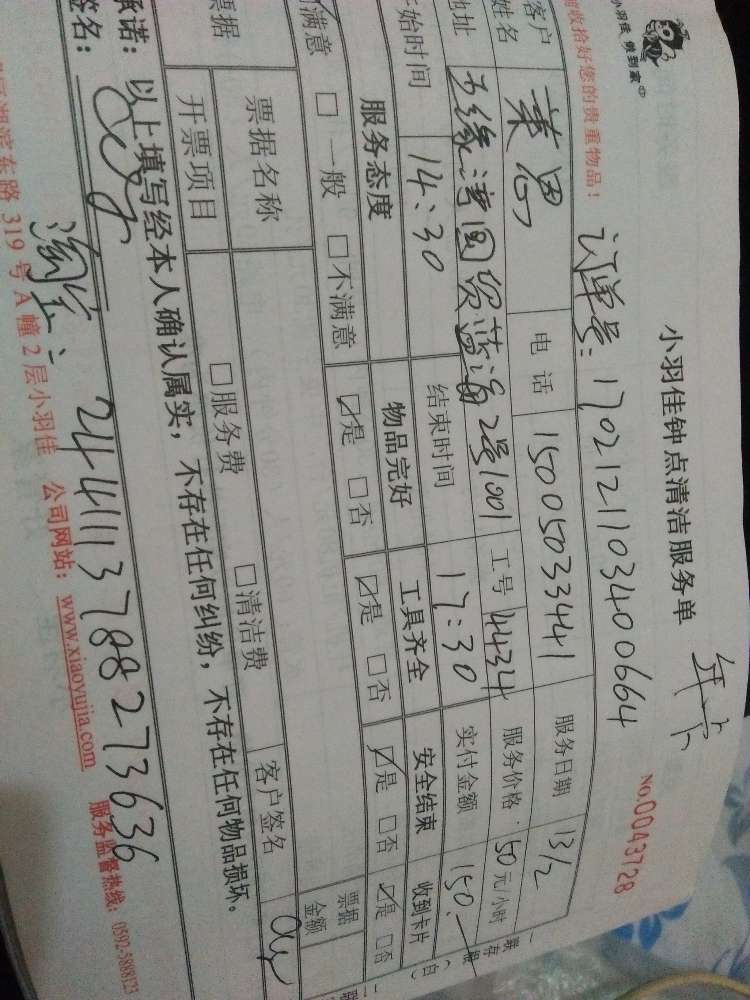 小羽佳 做到家
小羽佳钟点清洁服务单
年卡
NO.0043728
收拾好您的贵重物品！
订单号：1702121103400664
客户姓名
电话 15005033441
服务日期 13/2
地址 五缘湾国贸蓝海2号1001
工号 4434
服务价格：50元/小时
始时间 14:30
结束时间 17:30
实付金额 150.
服务态度
物品完好
工具齐全
安全结束
收到卡片
满意 □一般 □不满意
☑是 □否
☑是 □否
☑是 □否
☑是 □否
票据
票据名称
票据金额
开票项目
□服务费
□清洁费
客户签名
承诺：以上填写经本人确认属实，不存在任何纠纷，不存在任何物品损坏。
签名：
淘宝：2441113788273636
湖滨东路 319 号 A 幢 2 层小羽佳 公司网站：www.xiaoyujia.com 服务监督热线：0592-5888123